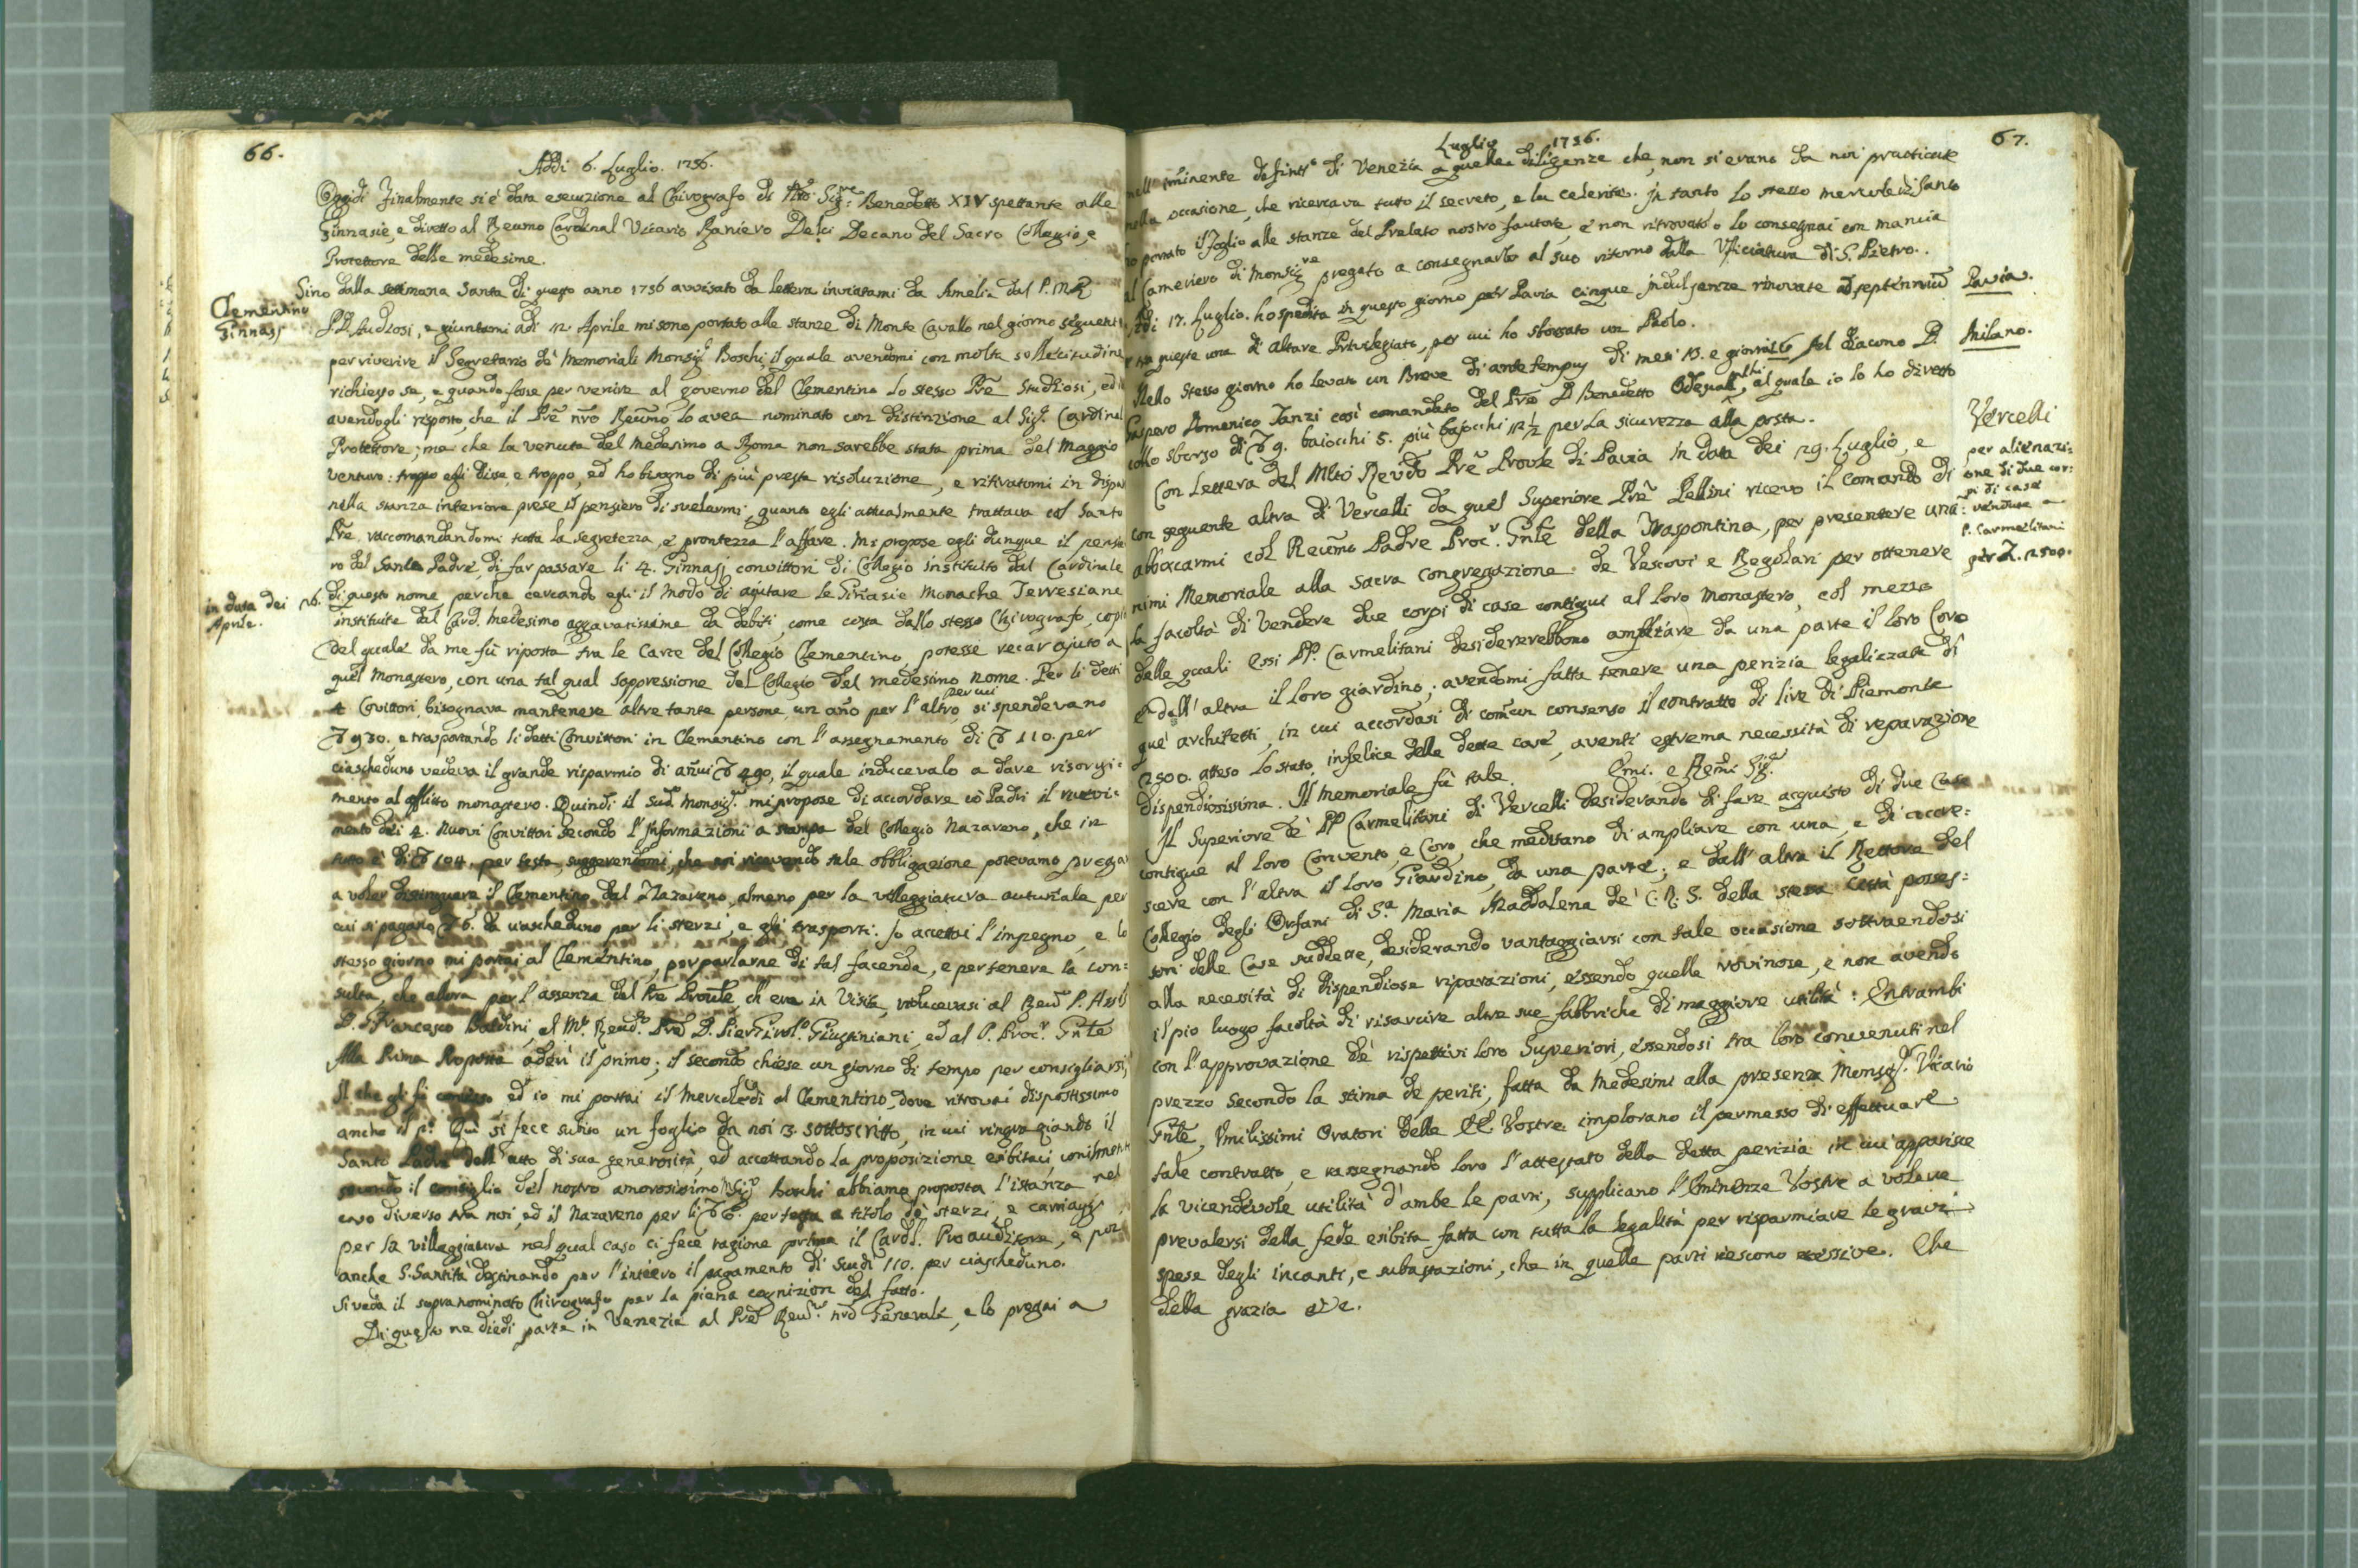 66.
Addi 6. Luglio. 1756.
Oggidì finalmente si è data esecuzione al Chirografo di Nro Sigre Benedetto XIV spettante alle
Ginnasie, e diretto al Reumo Cardinal Vicario Raniero Delci Decano del Sacro Collegio, e
Protettore delle medesime.
Clementino
Ginnasj
Sino dalla settimana Santa di questo anno 1756 avvisato da lettera inviatami da Amelia dal P. M R
P. D. Studiosi, e giuntami adì 12 Aprile mi sono portato alle stanze di Monte Cavallo nel giorno seguente
per riverire il Segretario de' Memoriali Monsigr Boschi, il quale avendomi con molta sollecitudine
richiesto se, e quando fosse per venire al governo del Clementino lo stesso Pre Studiosi, ed
avendogli risposto, che il Pre nro Reumo lo avea nominato con distinzione al Sigr Cardinal
Protettore; ma che la venuta del medesimo a Roma non sarebbe stata prima del Maggio
venturo: troppo egli disse, e troppo, ed ho bisogno di più presta risoluzione, e ritiratomi in dispar
nella stanza interiore prese il pensiero di svelarmi, quanto egli attualmente trattava col Santo
Pre, raccomandandomi tutta la segretezza, e prontezza l'affare. Mi propose egli dunque il pensie
ro del Santo Padre, di far passare li 4. Ginnasj convittori di Collegio instituito dal Cardinale
in data dei 26.
Aprile.
di questo nome perche cercando egli il modo di ajutare le Ginasie Monache Terresiane
instituite dal Card. medesimo aggravatissime da debiti, come costa dallo stesso Chirografo, copia
del quale da me fù riposta tra le Carte del Collegio Clementino, potesse recar ajuto a
quel Monastero, con una tal qual soppressione del Collegio del medesimo nome. Per li detti
4 Covittori, bisognava mantenere altre tante persone, un año per l'altro per cui si spendevano
930. e trasportando li detti Convittori in Clementino con l'assegnamento di 110. per
ciascheduno vedeva il grande risparmio di añui 490, il quale inducevalo a dare risorgi=
mento al afflitto monastero. Quindi il sud. Monsigr mi propose di accordare cò Padri il ricevi=
mento dei 4. nuovi Convittori secondo l'Informazioni a stampa del Collegio Nazareno, che in
tutto è di 104. per testa, suggerendomi, che noi ricevendo tale obbligazione potevamo pregar
a voler distinguere il Clementino dal Nazareno, almeno per la villeggiatura autuñale per
cui si pagano 6. da ciascheduno per li sterzi, e gli trasporti. Io accettai l'impegno, e lo
stesso giorno mi portai al Clementino, per parlarne di tal facenda, e per tenere la con=
sulta, che allora per l'assenza del Pre Prouле, ch'era in Visita, riducevasi al Reuo P. Assis
D. Francesco Baldini, al Mto Reudo Pre D. Pier Girolo Giustiniani, ed al P. Procr Gnle
Alla Prima Proposta aderì il primo; il secondo chiese un giorno di tempo per consigliarsi,
il che gli fù concesso ed io mi portai il Mercoledì al Clementino, dove ritrovai dispostissimo
anche il po. Quì si fece subito un foglio da noi 3. sottoscritto, in cui ringraziando il
Santo Padre dell'atto di sua generosità, ed accettando la proposizione esibitaci,
secondo il consiglio del nostro amorosissimo Msigr Boschi abbiamo proposta l'istanza nel
caso diverso tra noi, ed il Nazareno per li 6. per testa a titolo de' sterzi, e cariaggi
per la villeggiatura nel qual caso ci fece ragione prima il Cardl. Pro auditore, e poi
anche S. Santità destinando per l'intiero il pagamento di scudi 110. per ciascheduno.
Si veda il sopranominato Chirografo per la piena cognizion del fatto.
Di questo ne diedi parte in Venezia al Pre Reumo nro Generale, e lo pregai a
67.
Luglio 1756.
nell'iminente definito di Venezia a quelle diligenze, che non si erano da noi practicate
nella occasione, che ricercava tutto il secreto, e la celerità. In tanto lo stesso mercoledì Santo
ho portato il foglio alle stanze del Prelato nostro fautore, e non ritrovato lo consegnai con mancia
al Cameriero di Monsigre pregato a consegnarlo al suo ritorno dalla Uficiatura di S. Pietro.
Addi 17. Luglio. ho spedita in questo giorno per Pavia cinque indulgenze rinovate ad septennium
Pavia.
e tra queste una di altare Privilegiato, per cui ho sborsato un Paolo.
Nello stesso giorno ho levato un Breve di ante tempus di mesi 13. e giorni 26 pel diacono D.
Milano.
Gaspero Domenico Tanzi così comandato dal Pre D Benedetto Odescalchi, al quale io lo ho diretto
collo sborso di 9. baiocchi 5. più bajocchi 12 1/2 per la sicurezza alla posta.
Vercelli
per alienazi=
one di due cor:
pi di case
vendute a
P. Carmelitani
per L. 2500.
Con lettera del Mlto Revdo Pre Prouле di Pavia in data dei 29. Luglio, e
con seguente altra di Vercelli da quel Superiore Pre Pellini ricevo il comando di
abbocarmi col Reumo Padre Procr. Gnle della Traspontina, per presentare una=
nimi Memoriale alla sacra congregazione de Vescovi e Regolari per ottenere
la facoltà di vendere due corpi di case contigui al loro monastero, col mezzo
delle quali essi PP. Carmelitani desidererebbono ampliare da una parte il loro Coro
e dall'altra il loro giardino; avendomi fatta tenere una perizia legalizzata di
que' architetti, in cui accordasi di comun consenso il contratto di lire di Piemonte
2500. atteso lo stato infelice delle dette case, aventi estrema necessità di reparazione
dispendiosissima. Il memoriale fù tale. Emi. e Remi Sigri
Il Superiore de' PP Carmelitani di Vercelli desiderando di fare acquisto di due Case
contigue al loro Convento, e Coro, che meditano di ampliare con una, e di accre=
scere con l'altra il loro Giardino, da una parte; e dall'altra il Rettore del
Collegio degli Orfani di Sa Maria Maddalena de' C. R. S. della stessa Città posses=
sori delle Case suddette, desiderando vantaggiarsi con tale occasione sottraendosi
alla necessità di dispendiose riparazioni, essendo quelle rovinose, e non avendo
il pio luogo facoltà di risarcire altre sue fabbriche di maggiore utilità: Entrambi
con l'approvazione de' rispettivi loro Superiori, essendosi tra loro convenuti nel
prezzo secondo la stima de periti, fatta da medesimi alla presenza Monsigr. Vicario
Gnle, Umilissimi Oratori delle EE. Vostre implorano il permesso di effettuare
tale contratto, e rassegnando loro l'attestato della detta perizia in cui apparisce
la vicendevole utilità d'ambe le parti, supplicano l'Eminenze Vostre a volere
prevalersi della fede esibita fatta con tutta la legalità per risparmiare le gravi
spese degli incanti, e subastazioni, che in quelle parti riescono eccessive. Che
della grazia etc.